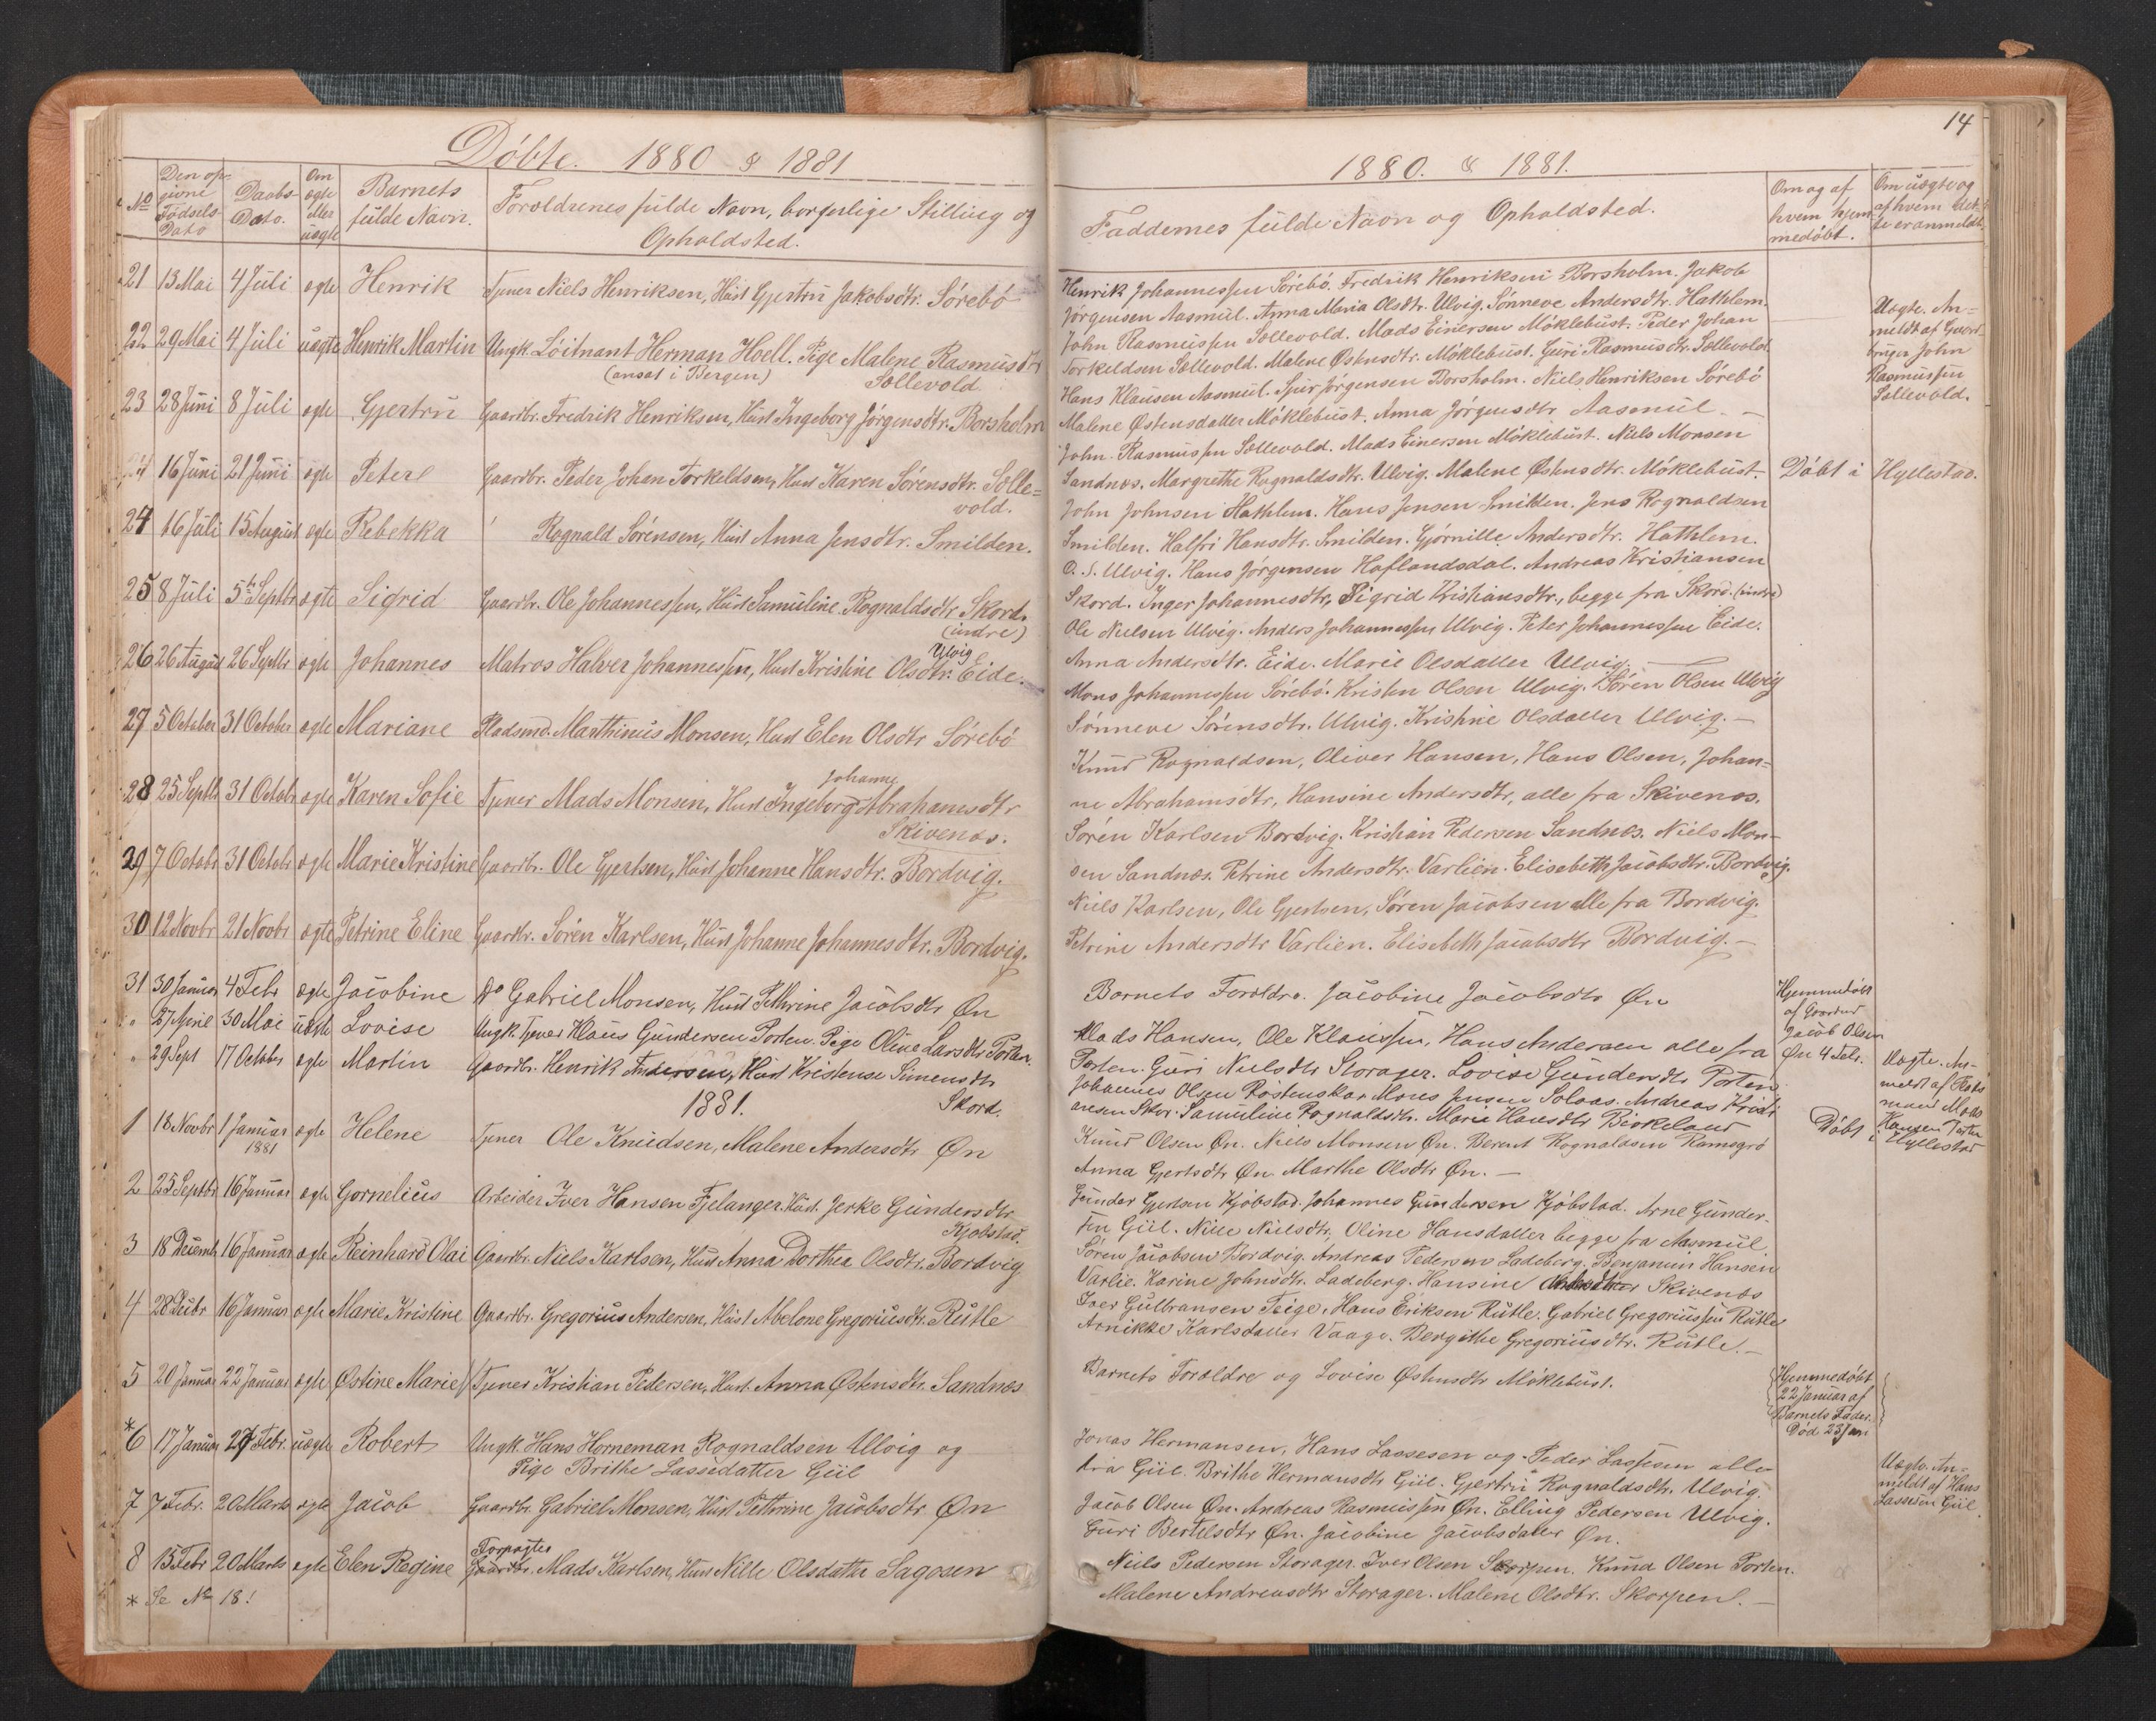 Döbte. 1880 & 1881
No
Den op-
givne
Födsels-
Dato
Daabs-
Dato.
Om
ægte
eller
uægte
Barnets
fulde Navn.
Forældrenes fulde Navn, borgerlige Stilling og
Opholdsted.
21 13 Mai 4 Juli ægte Henrik Tjener Niels Henriksen, Hust Gjertru Jakobsdtr. Sörebö
22 29 Mai 4 Juli uægte Henrik Martin Ungk. Löitnant Herman Hoell. Pige Malene Rasmusdtr
(ansat i Bergen) Sællevold
23 28 Juni 8 Juli ægte Gjertru Gaardbr. Fredrik Henriksen, Hust Ingeborg Jörgensdtr. Borsholm
24 16 Juni 21 Juni ægte Peter Gaardbr. Peder Johan Torkeldsen, Hust Karen Sörensdtr. Sælle=
vold.
24 16 Juli 15 August ægte Rebekka Rognald Sörensen, Hust Anna Jensdtr. Smilden.
25 8 Juli 5te Septbr ægte Sigrid Gaardbr. Ole Johannessen, Hust Samuline Rognaldsdtr. Skord.
(indre)
26 26 August 26 Septbr ægte Johannes Matros Halver Johannessen, Hust Kristine Olsdtr. Ulvig Eide.
27 5 October 31 October ægte Mariane Pladsmd. Marthinus Monsen, Hust Elen Olsdtr Sörebö
28 25 Septbr 31 Octobr ægte Karen Sofie Tjener Mads Monsen, Hust Ingeborg Johanne Abrahamsdtr
Skivenæs.
29 7 Octobr 31 Octobr ægte Marie Kristine Gaardbr. Ole Gjertsen, Hust Johanne Hansdtr. Bordvig.
30 12 Novbr 21 Novbr ægte Petrine Eline Gaardbr. Sören Karlsen, Hust Johanne Johannesdtr. Bordvig.
31 30 Januar 4 Febr ægte Jacobine Do Gabriel Monsen, Hust Pethrine Jacobsdtr Øn
" 27 April 30 Mai uægte Lovise Ungk. Tjener Klaus Gundersen Porten. Pige Oline Larsdtr Porten.
" 29 Sept 17 October ægte Martin Gaardbr. Henrik Andersen, Hust Kristense Simensdtr
Skord.
1881.
1 18 Novbr 1 Januar 1881 ægte Helene Tjener Ole Knudsen, Malene Andersdtr Øn
2 25 Septbr 16 Januar ægte Gornelius Arbeider Iver Hansen Fjelanger. Hust. Jerke Gundersdtr
Kjöbstad.
3 18 Decemb 16 Januar ægte Reinhard Olai Gaardbr. Niels Karlsen, Hust Anna Dorthea Olsdtr. Bordvig
4 28 Decbr 16 Januar ægte Marie Kristine Gaardbr. Gregorius Andersen, Hust Abelone Gregoriusdtr. Rutle
5 20 Januar 22 Januar ægte Østine Marie Tjener Kristian Pedersen, Hust. Anna Østensdtr. Sandnæs
*6 17 Januar 27 Febr. uægte Robert Ungk. Hans Horneman Rognaldsen Ulvig og
Pige Brithe Lassedatter Giil
7 7 Febr. 20 Marts ægte Jacob Gaardbr. Gabriel Monsen, Hust. Pethrine Jacobsdtr Øn
Forpagter
8 15 Febr 20 Marts ægte Elen Regine Gaardbr. Mads Karlsen, Hust Nille Olsdatter Sagøen
* Se No 18!
14
1880. & 1881.
Faddernes fulde Navn og Opholdsted.
Om og af
hvem hjem-
medöbt.
Om uægte og
af hvem det-
te er anmeldt.
Henrik Johannessen Sörebö. Fredrik Henriksen Borsholm. Jakob
Jörgensen Aasmul. Anna Maria Olsdtr. Ulvig. Sönneve Andersdtr. Hathlem.
John Rasmussen Sællevold. Mads Einersen Möklebust. Peder Johan
Torkeldsen Sællevold. Malene Østensdtr. Möklebust. Guri Rasmusdtr. Sællevold
Uægte. An=
meldt af Gaard-
bruger John
Rasmussen
Sællevold.
Hans Klausen Aasmul. Sjur Jörgensen Borsholm. Niels Henriksen Sörebö
Malene Østensdatter Möklebust. Anna Jörgensdtr Aasmul. —
John Rasmussen Sællevold. Mads Einersen Möklebust. Niels Monsen
Sandnæs. Margrethe Rognaldsdtr. Ulvig. Malene Østensdtr. Möklebust. Döbt i Hyllestad.
John Johnsen Hathlem. Hans Jensen Smilden. Jens Rognaldsen
Smilden. Halfri Hansdtr. Smilden. Gjörnille Andersdtr. Hathlem.
O. S. Ulvig. Hans Jörgensen Haflandsdal. Andreas Kristiansen
Skord. Inger Johannesdtr, Sigrid Kristiansdtr., begge fra Skord. (indre)
Ole Nielsen Ulvig. Anders Johannessen Ulvig. Peter Johannessen Eide.
Anna Andersdtr. Eide. Marie Olsdatter Ulvig.
Mons Johannessen Sörebö. Kristen Olsen Ulvig. Sören Olsen Ulvig
Sönneve Sörensdtr. Ulvig. Kristine Olsdatter Ulvig. —
Knud Rognaldsen, Oliver Hansen, Hans Olsen, Johan=
ne Abrahamsdtr, Hansine Andersdtr, alle fra Skivenæs.
Sören Karlsen Bordvig. Kristian Pedersen Sandnæs. Niels Mon-
sen Sandnæs. Petrine Andersdtr. Varlien. Elisabeth Jacobsdtr. Bordvig.
Niels Karlsen, Ole Gjertsen, Sören Jacobsen alle fra Bordvig.
Petrine Andersdtr Varlien. Elisabeth Jacobsdtr Bordvig. —
Barnets Forældre. Jacobine Jacobsdtr Øn
Hjemmedöbt
af Gaardbr
Jacob Olsen
Øn 4 Febr.
Mads Hansen, Ole Klaussen, Hans Andersen alle fra
Porten. Guri Nielsdtr Storager. Lovise Gundersdtr Porten
Uægte. An-
meldt af Plads
mand Mads
Hansen Porten
Johannes Olsen Rostenskar Mons Jensen Solaas. Andreas Kristi
ansen Skor. Samuline Rognaldsdtr. Marie Hansdtr Birkeland
Döbt i Hyllestad
Knud Olsen Øn. Niels Monsen Øn. Berent Rognaldsen Ramsgrö
Anna Gjertsdtr Øn. Marthe Olsdtr Øn. —
Gunder Gjertsen Kjöbstad. Johannes Gundersen Kjöbstad. Arne Gunder-
sen Giil. Nille Nielsdtr, Oline Hansdatter begge fra Aasmul.
Sören Jacobsen Bordvig. Andreas Pedersen Ladeberg. Benjamin Hansen
Varlie. Karine Johnsdtr. Ladeberg. Hansine Skivenæs
Iver Gulbransen Teige. Hans Eriksen Rutle. Gabriel Gregoriussen Rutle
Annikke Karlsdatter Vaage. Bergithe Gregoriusdtr. Rutle. —
Barnets Forældre og Lovise Østensdtr Möklebust.
Hjemmedöbt
22 Januar af
Barnets Fader.
Död 23 Jan
Jonas Hermansen, Hans Lassesen og Peder Lassesen alle
fra Giil. Brithe Hermansdtr Giil. Gjertru Rognaldsdtr. Ulvig.
Uægte. An-
meldt af Hans
Lassesen Giil
Jacob Olsen Øn. Andreas Rasmussen Øn. Elling Pedersen Ulvig.
Guri Bertelsdtr Øn. Jacobine Jacobsdatter Øn.
Niels Pedersen Storager. Iver Olsen Skorpen. Knud Olsen Porten.
Malene Andreasdtr Storager. Malene Olsdtr. Skorpen. —